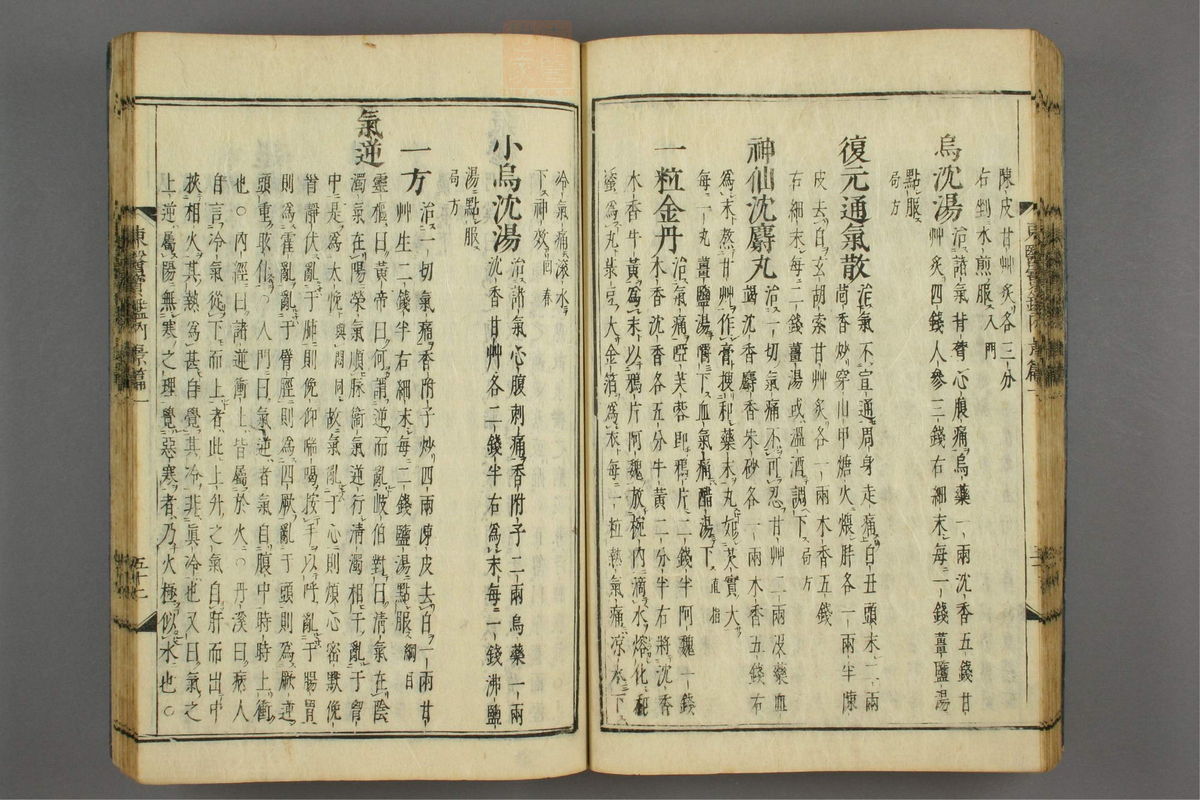 陳皮甘艸炙各三分
右剉水煎服入門
烏沈湯治諸氣甘脊心腹痛烏藥一兩沈香五錢甘
艸炙四錢人參三錢右細末每一錢薑鹽湯
點服
局方
復元通氣散治氣不宣通周身走痛白丑頭末二兩
茴香炒穿山甲煻火煨胖各一兩半陳
皮去白玄胡索甘艸炙各一兩木香五錢
右細末每二錢薑湯或溫酒調下局方
神仙沈麝丸治一切氣痛不可忍甘艸二兩沒藥血
竭沈香麝香朱砂各一兩木香五錢右
爲末熬甘艸作膏搜和藥末丸如芡實大
每一丸薑鹽湯嚼下血氣痛醋湯下直指
一粒金丹治氣痛啞芙蓉即鴉片二錢半阿魏一錢
木香沈香各五分牛黃二分半右將沈香
木香牛黃爲末以鴉片阿魏放椀內滴水熔化和
蜜爲丸菉豆大金箔爲衣每一粒熱氣痛凉水下
冷氣痛滚水
下神效回春
小烏沈湯治諸氣心腹刺痛香附子二兩烏藥一兩
沈香甘艸各二錢半右爲末每一錢沸鹽
湯點服
局方
一方治一切氣痛香附子炒四兩陳皮去白一兩甘
艸生二錢半右細末每二錢鹽湯點服綱目
氣逆
靈樞曰黃帝曰何謂逆而亂歧伯對曰淸氣在陰
濁氣在陽榮氣順脉衞氣逆行淸濁相干亂于胷
中是爲大悗與悶同故氣亂于心則煩心密默俛
首靜伏亂于肺則俛仰喘喝按手以呼亂于腸胃
則爲霍亂亂于臂脛則爲四厥亂于頭則爲厥逆
頭重眩仆○入門曰氣逆者氣自腹中時時上衝
也○內經曰諸逆衝上皆屬於火○丹溪曰病人
自言冷氣從下而上者此上升之氣自肝而出中
挾相火其熱爲甚自覺其冷非眞冷也又曰氣之
上逆屬陽無寒之理覺惡寒者乃火極似水也○
東醫寶鑑內景篇一
五十二